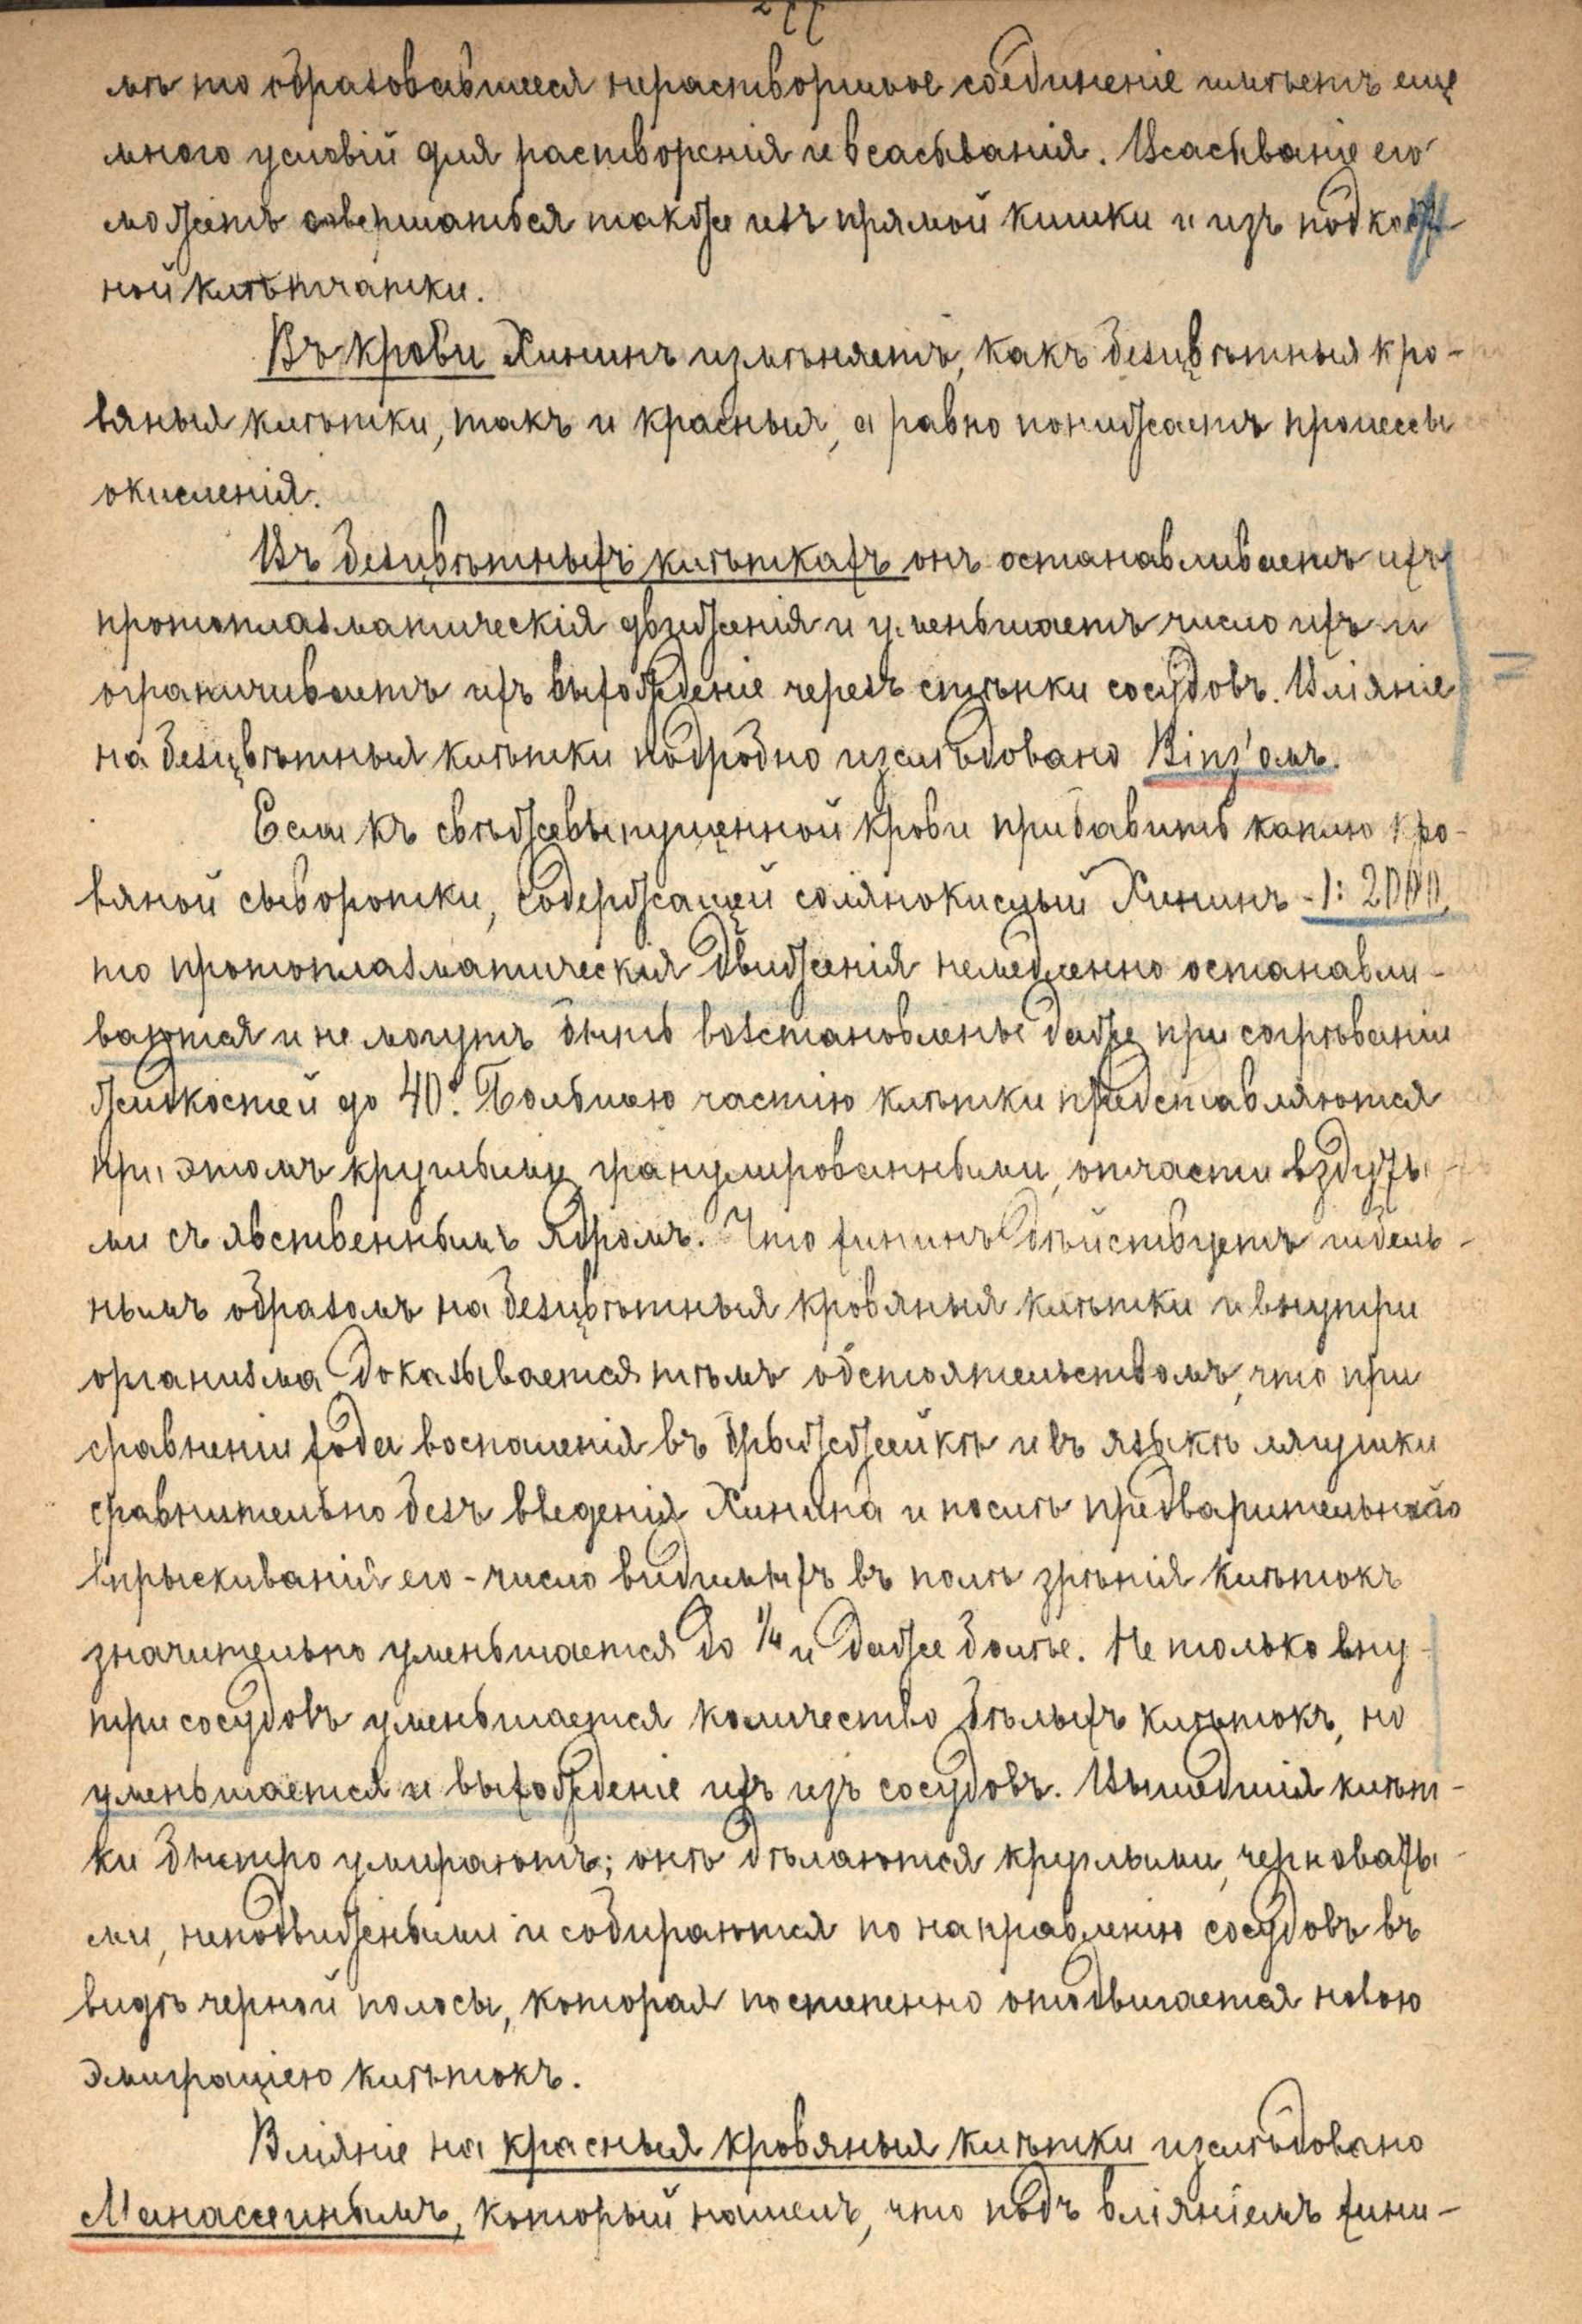 277
мъ то образовавшееся нерастворимое соединеніе имѣетъ еще
много условій для растворенія и всасыванія. Всасываніе его
можетъ совершаться также изъ прямой кишки и изъ подкож
ной клѣтчатки.
Въ крови Хининъ измѣняетъ, какъ безцвѣтныя кро-
вяныя клѣтки, такъ и красныя, а равно понижаетъ процессы
окисленія.
Въ безцвѣтныхъ клѣткахъ онъ останавливаетъ ихъ
протоплазматическія движенія и уменьшаетъ число ихъ и
ограничиваетъ ихъ выхожденіе черезъ стѣнки сосудовъ. Вліяніе
на безцвѣтныя клѣтки подробно изслѣдовано Binz'омъ.
Если къ свѣжевыпущенной крови прибавить каплю кро-
вяной сыворотки, содержащей солянокислый Хининъ - 1: 2000,
то протоплазматическія движенія немедленно останавли-
ваются и не могутъ быть возстановлены даже при согрѣваніи
жидкостей до 40°. Большею частію клѣтки представляются
при этомъ круглыми, гранулированными, отчасти вздуты
ми съ явственнымъ ядромъ. Что хининъ дѣйствуетъ подоб-
нымъ образомъ на безцвѣтныя кровяныя клѣтки и внутри
организма доказывается тѣмъ обстоятельствомъ, что при
сравненіи хода воспаленія въ брыжжейкѣ и въ языкѣ лягушки
сравнительно безъ введенія Хинина и послѣ предварительнаго
впрыскиванія его - число видимыхъ въ полѣ зрѣнія клѣтокъ
значительно уменьшается до ¼ и даже болѣе. Не только вну-
три сосудовъ уменьшается количество бѣлыхъ клѣтокъ, но
уменьшается и выхожденіе ихъ изъ сосудовъ. Вышедшія клѣт-
ки быстро умираютъ; онѣ дѣлаются круглыми, черноваты-
ми, неподвижными и собираются по направленію сосудовъ въ
видѣ черной полосы, которая постепенно отодвигается новою
эмиграціею клѣтокъ.
Вліяніе на красныя кровяныя клѣтки изслѣдовано
Манассеинымъ, который нашелъ, что подъ вліяніемъ хини-